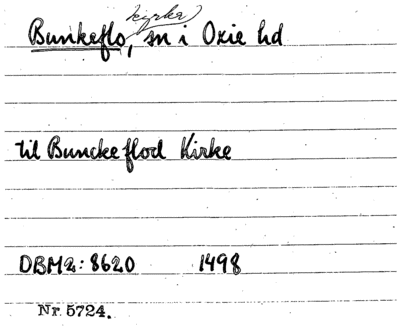 kyrka
Bunkeflo, sn i Oxie hd
til Bunckeflod Kirke
DBM2: 8620 1498
Nr. 5724.